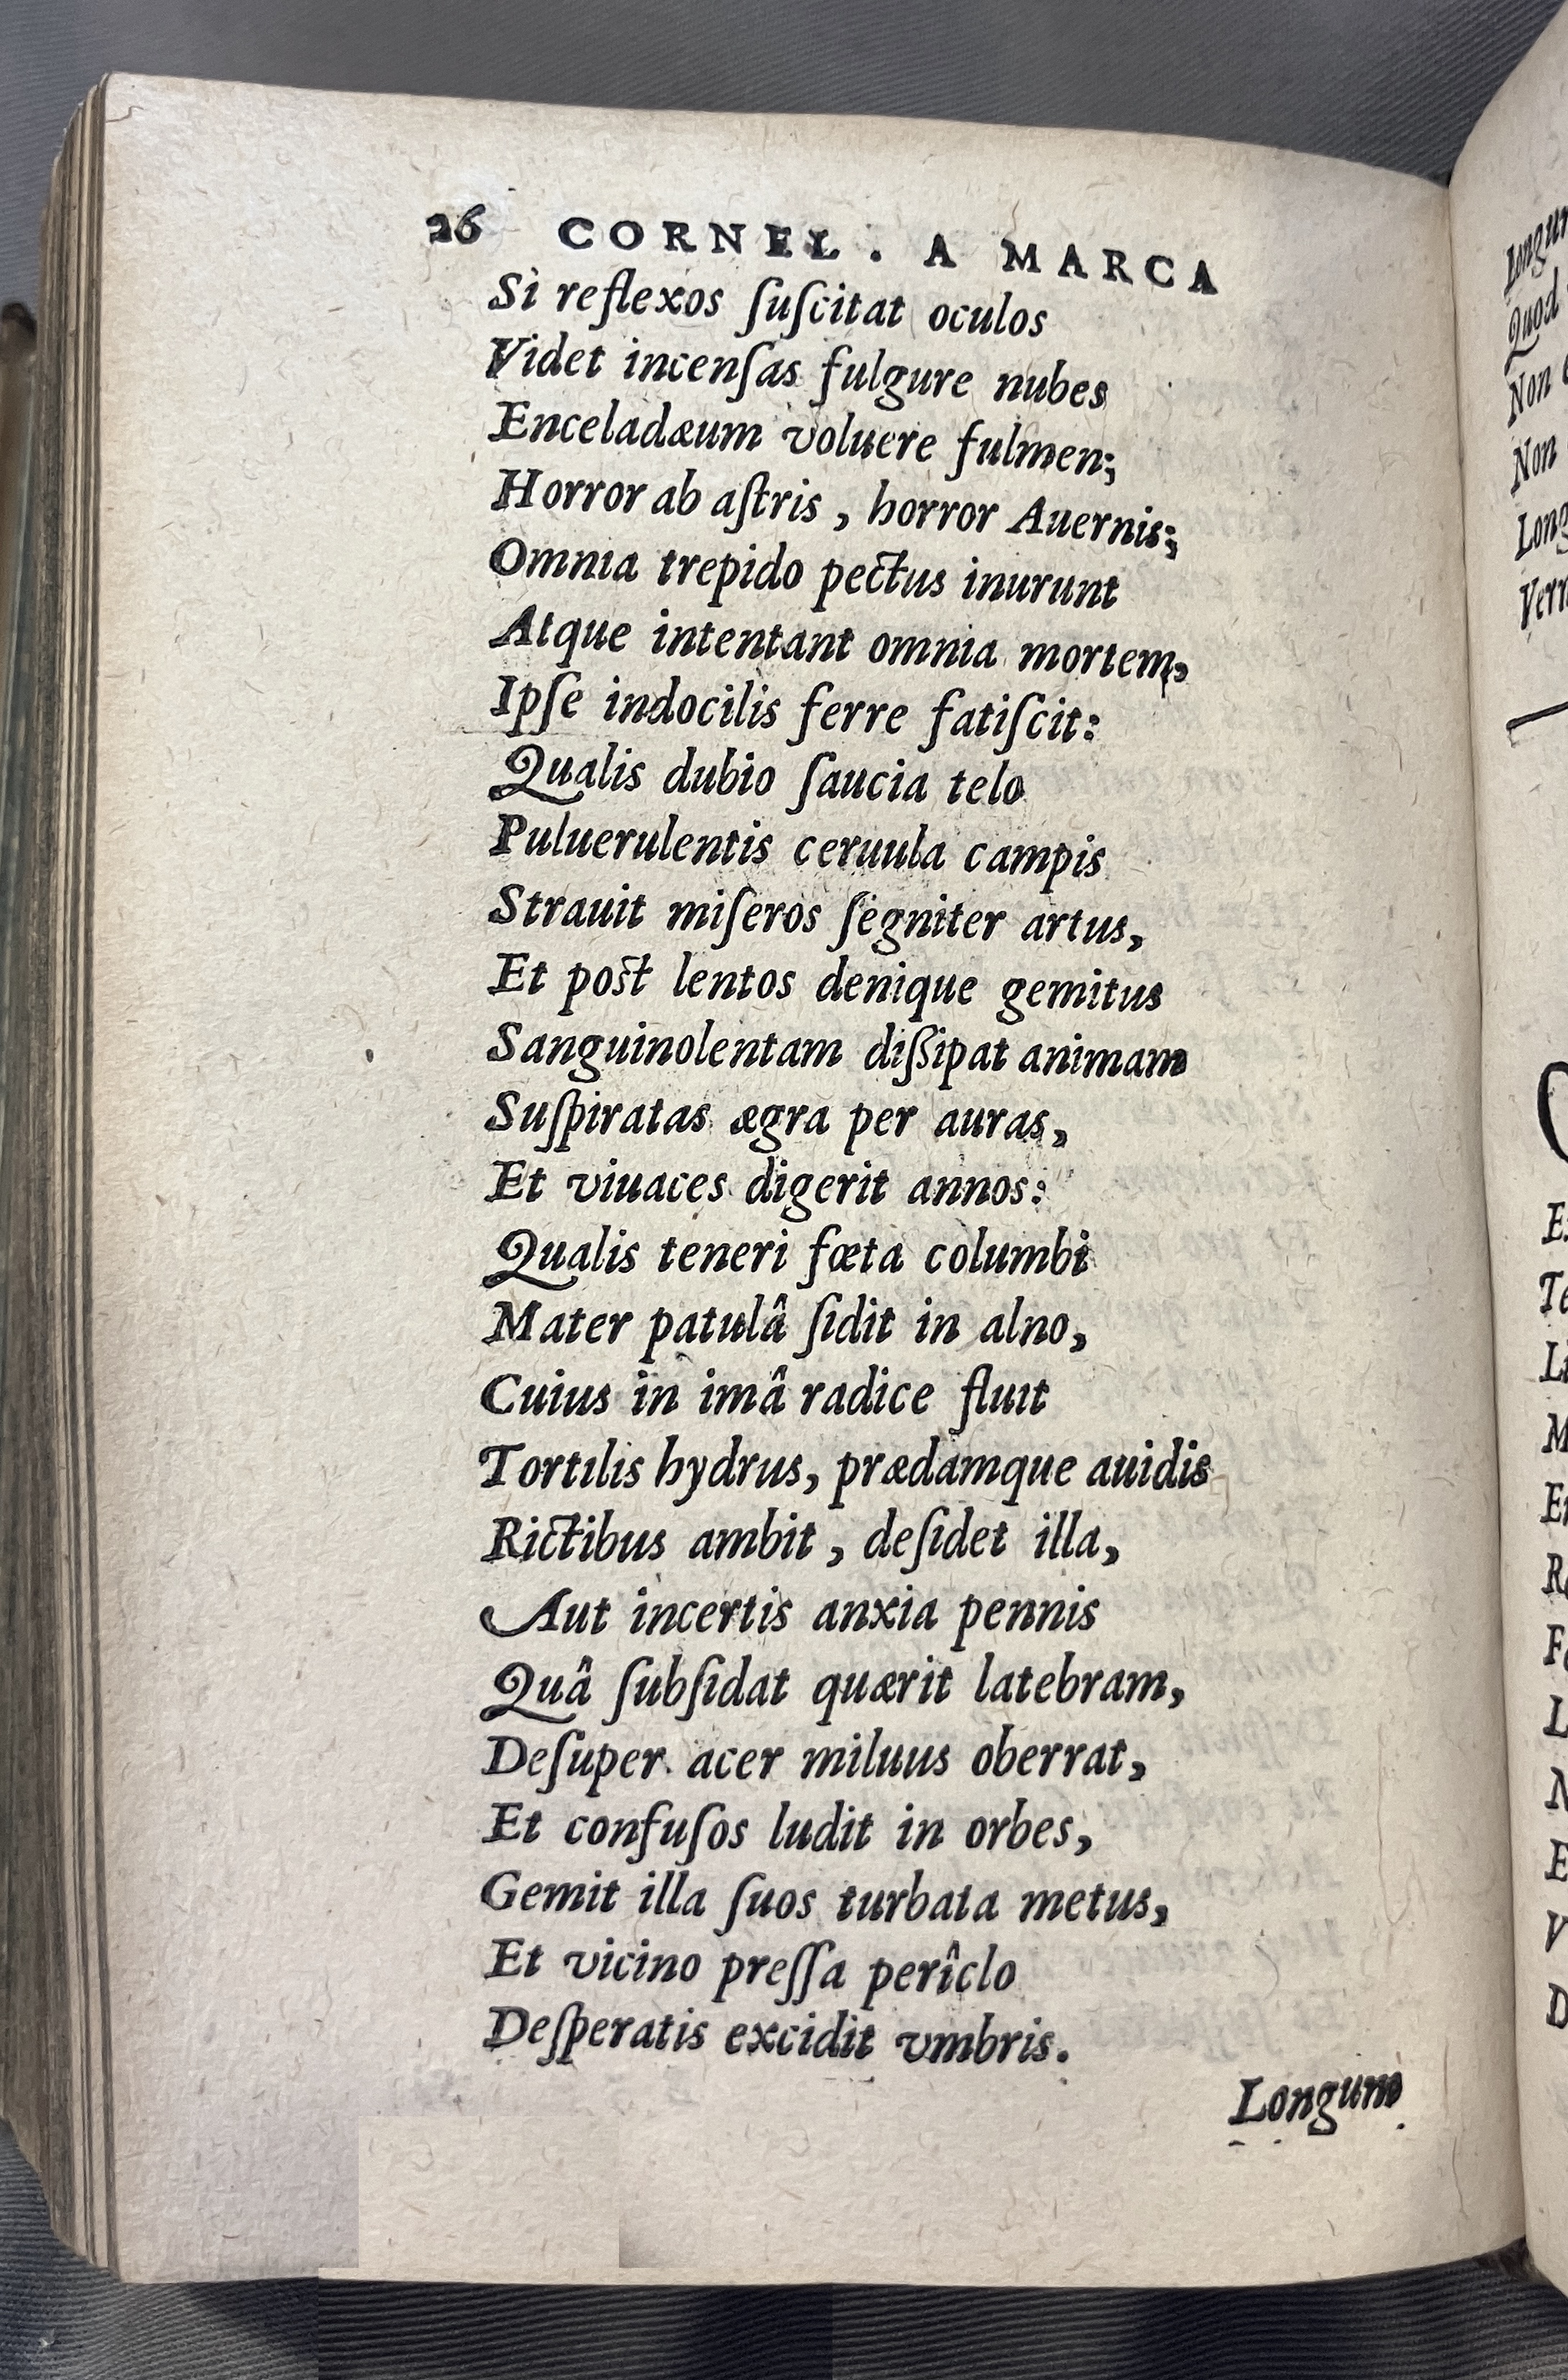 26 CORNEL. A MARCA
Si reflexos ſuſcitat oculos
Videt incenſas fulgure nubes
Enceladæum voluere fulmen;
Horror ab aſtris, horror Auernis;
Omnia trepido pectus inurunt
Atque intentant omnia mortem,
Ipſe indocilis ferre fatiſcit:
Qualis dubio ſaucia telo
Puluerulentis ceruula campis
Strauit miſeros ſegniter artus,
Et poſt lentos denique gemitus
Sanguinolentam diſſipat animam
Suſpiratas ægra per auras,
Et viuaces digerit annos:
Qualis teneri fœta columbi
Mater patulâ ſidit in alno,
Cuius in imâ radice fluit
Tortilis hydrus, prædamque auidis
Rictibus ambit, deſidet illa,
Aut incertis anxia pennis
Quâ ſubſidat quærit latebram,
Deſuper acer miluus oberrat,
Et confuſos ludit in orbes,
Gemit illa ſuos turbata metus,
Et vicino preſſa perîclo
Deſperatis excidit vmbris.
Longum
Quod
Non
Non